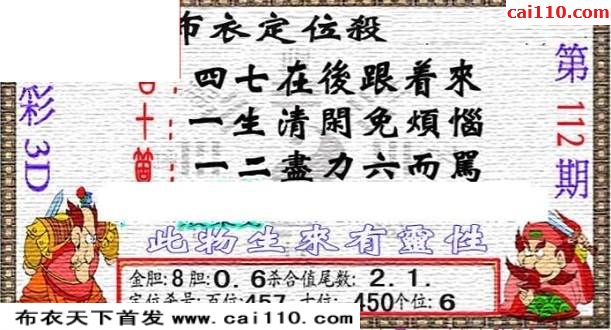 cai110.com
布衣定位殺
四七在後跟着來
一生清閑免煩惱
一二盡力六而罵
彩3D
第112期
此物生來有靈性
金胆:8胆:0.6杀合值尾数:2.1.
定位杀号:百位:457 十位:450个位:6
布衣天下首发 www.cai110.com